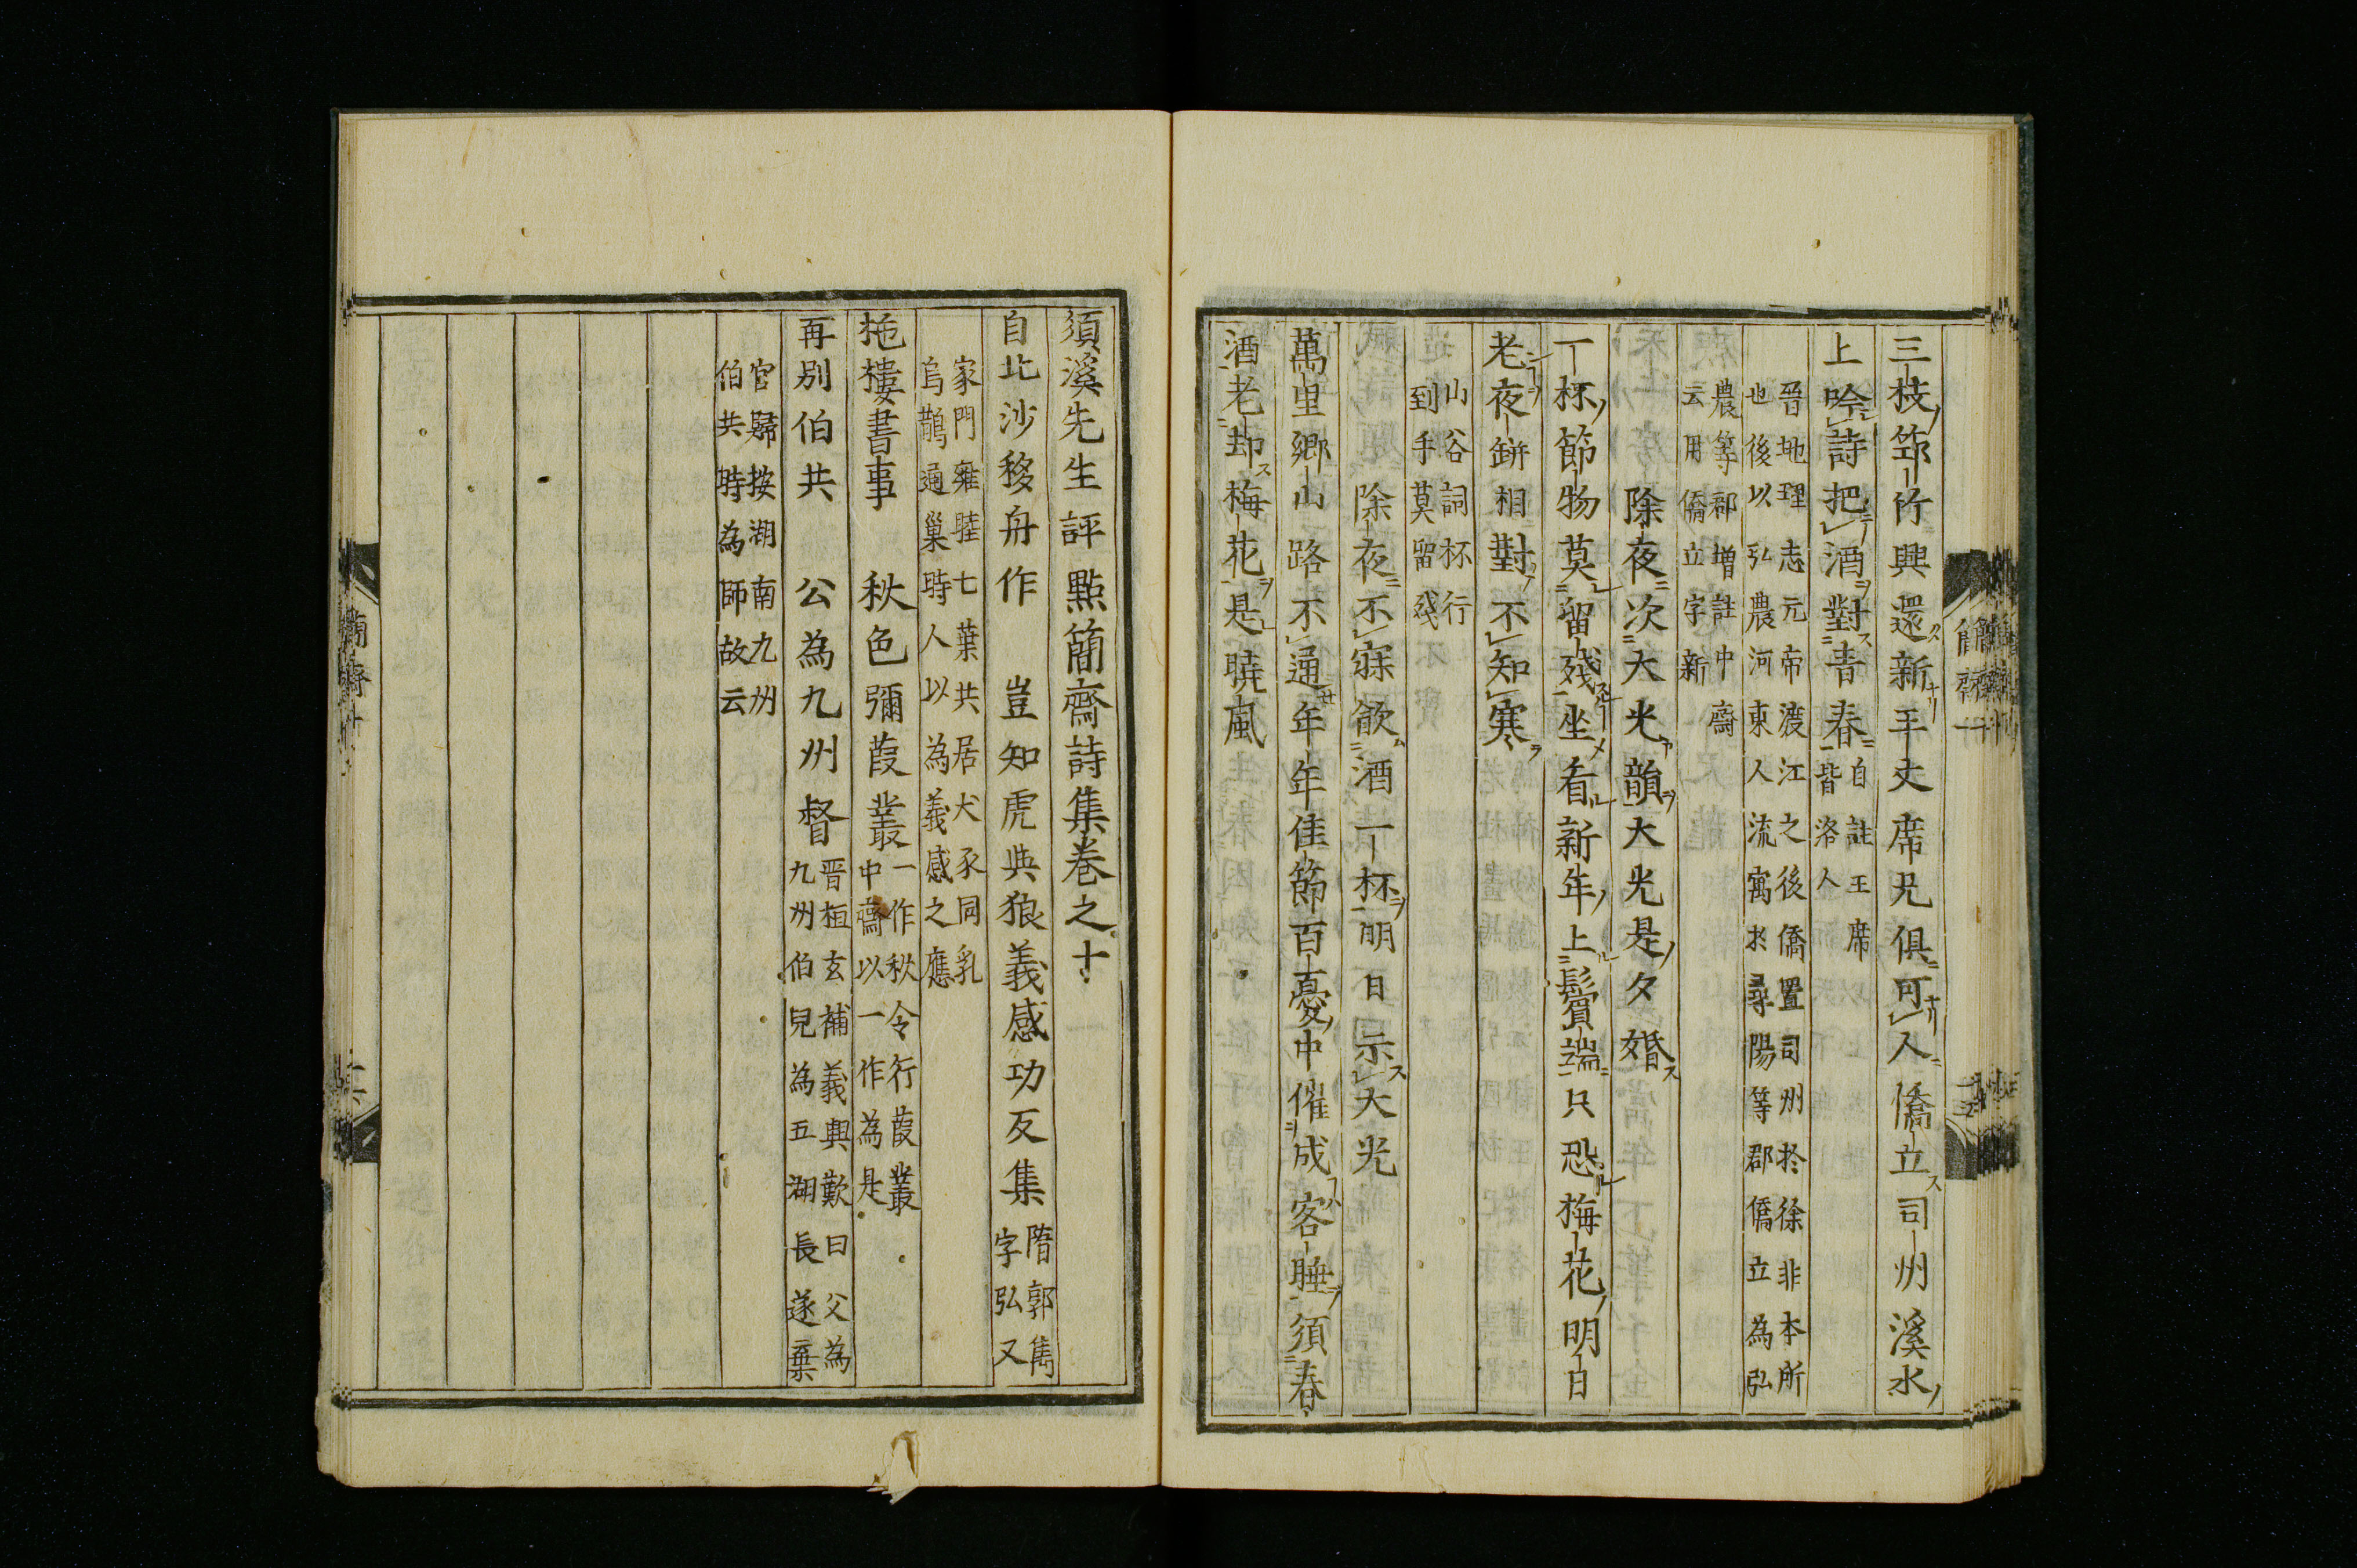 三枝筇竹興還新王丈席兄俱可人僑立司州溪水
上吟詩把酒對青春自註王席
皆洛人
晉地理志元帝渡江之後僑置司州於徐非本所
也後以弘農河東人流寓於尋陽等郡僑立為弘
農等郡增註中齋
云用僑立字新
除夜次大光韻大光是夕婚
一杯節物莫留殘坐看新年上鬢端只恐梅花明日
老夜缾相對不知寒
山谷詞杯行
到手莫留殘
除夜不寐飲酒一杯明日示大光
萬里鄉山路不通年年佳節百憂中催成客睡須春
酒老却梅花是曉風
簡齋十
須溪先生評點簡齋詩集卷之十
自北沙移舟作　豈知虎與狼義感功反集隋郭雋
字弘又
家門雍睦七葉共居犬豕同乳
烏鵲通巢時人以為義感之應
拖樓書事　秋色彌葭叢一作秋令行葭叢
中齋以一作為是
再別伯共　公為九州督晉桓玄補義興歎曰父為
九州伯兒為五湖長遂棄
官歸按湖南九州
伯共時為師故云
簡齋十